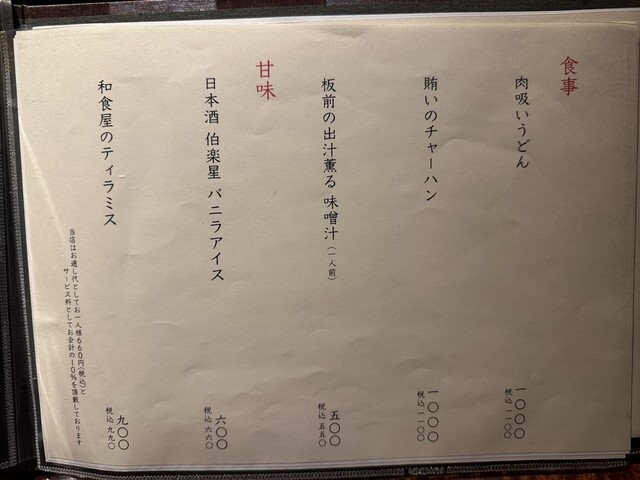 食事
肉吸いうどん
一〇〇〇
税込 一一〇〇
賄いのチャーハン
一〇〇〇
税込 一一〇〇
板前の出汁薫る 味噌汁(一人前)
五〇〇
税込 五五〇
甘味
日本酒 伯楽星 バニラアイス
六〇〇
税込 六六〇
和食屋のティラミス
九〇〇
税込 九九〇
当店はお通し代としてお一人様660円(税込)と
サービス料としてお会計の10%を頂戴しております